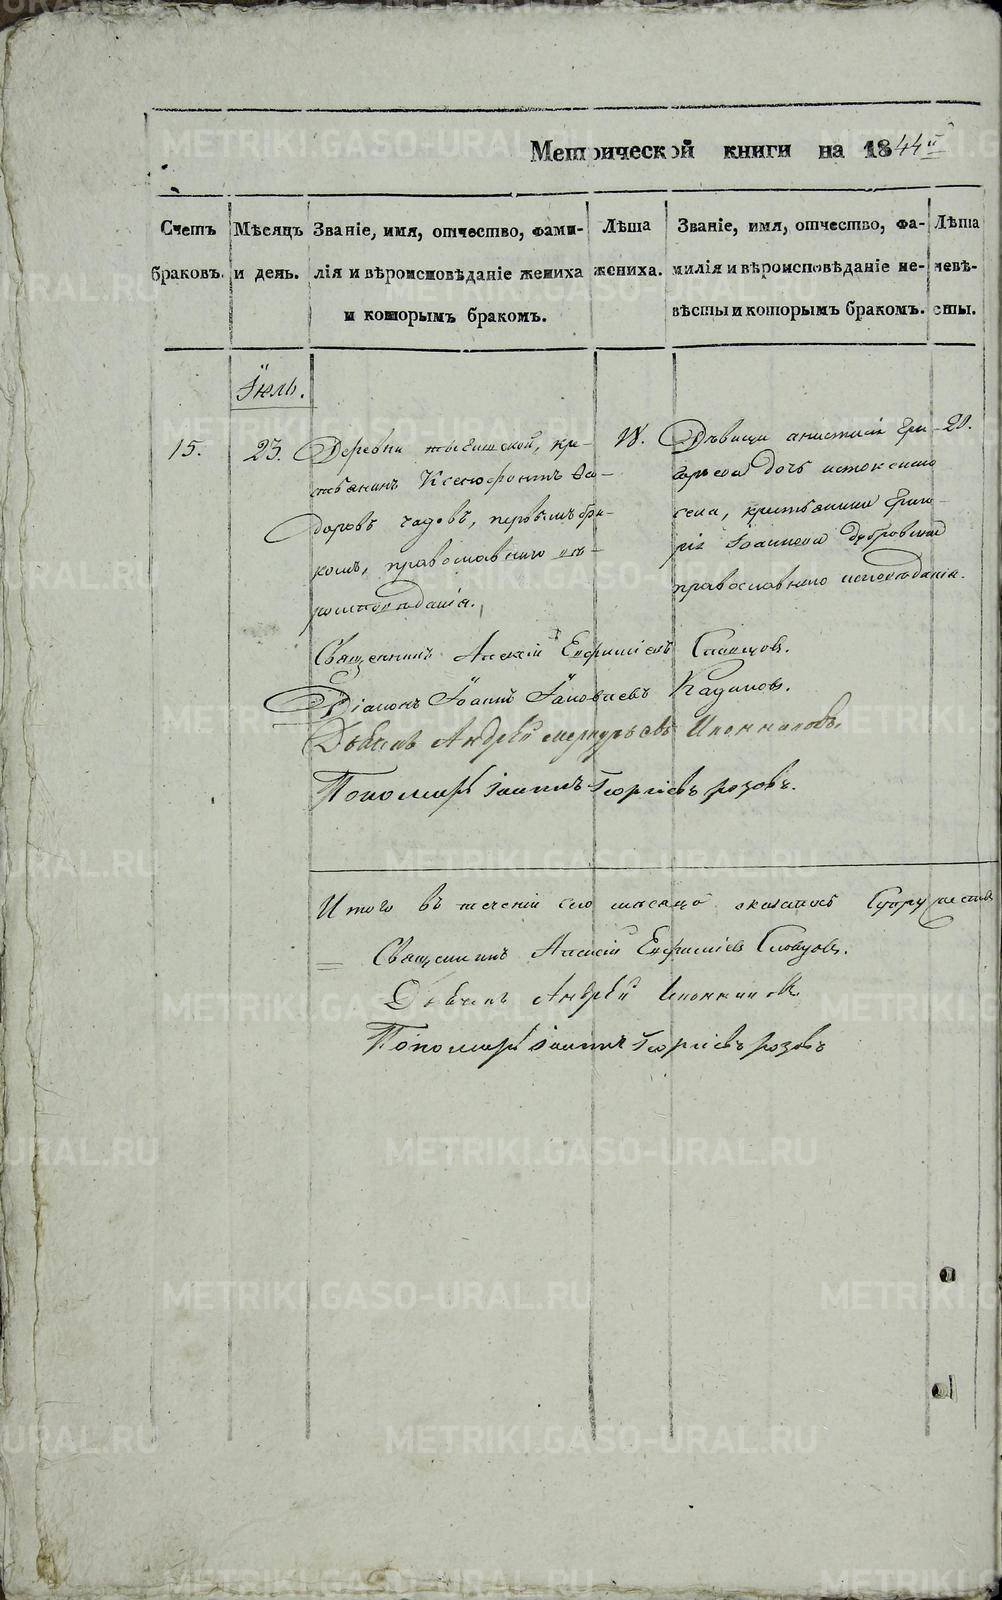 Метрической книги на 1844й
Счетъ браковъ.
Мѣсяцъ и день.
Званіе, имя, отчество, фами-
лія и вѣроисповѣданіе жениха
и которымъ бракомъ.
Лѣта
жениха.
Званіе, имя, отчество, фа-
милія и вѣроисповѣданіе не-
вѣсты и которымъ бракомъ.
Лѣта
невѣ-
сты.
Іюль.
15.
23.
Деревни кре-
стьянинъ Ксенофонтъ Ѳео-
доровъ чадовъ, первымъ бра-
комъ, православнаго
18.
Дѣвица Гри-
горьева дочь истокскаго
села, крестьянина Григо-
рія Іоаннова дубровина
православнаго исповѣданія.
20.
Священникъ Алексій Евфиміевъ Словцовъ.
Діаконъ Іоаннъ Іаковлевъ
Дьячекъ Андрей меркурьевъ Ипонниковъ.
Пономарь іоаннъ Георгіевъ розовъ.
Итого въ теченіи сего мѣсяца оказалось
Священникъ Алексій Евфиміевъ Словцовъ.
Дьячекъ Андрей
Пономарь іоаннъ Георгіевъ розовъ
METRIKI.GASO-URAL.RU